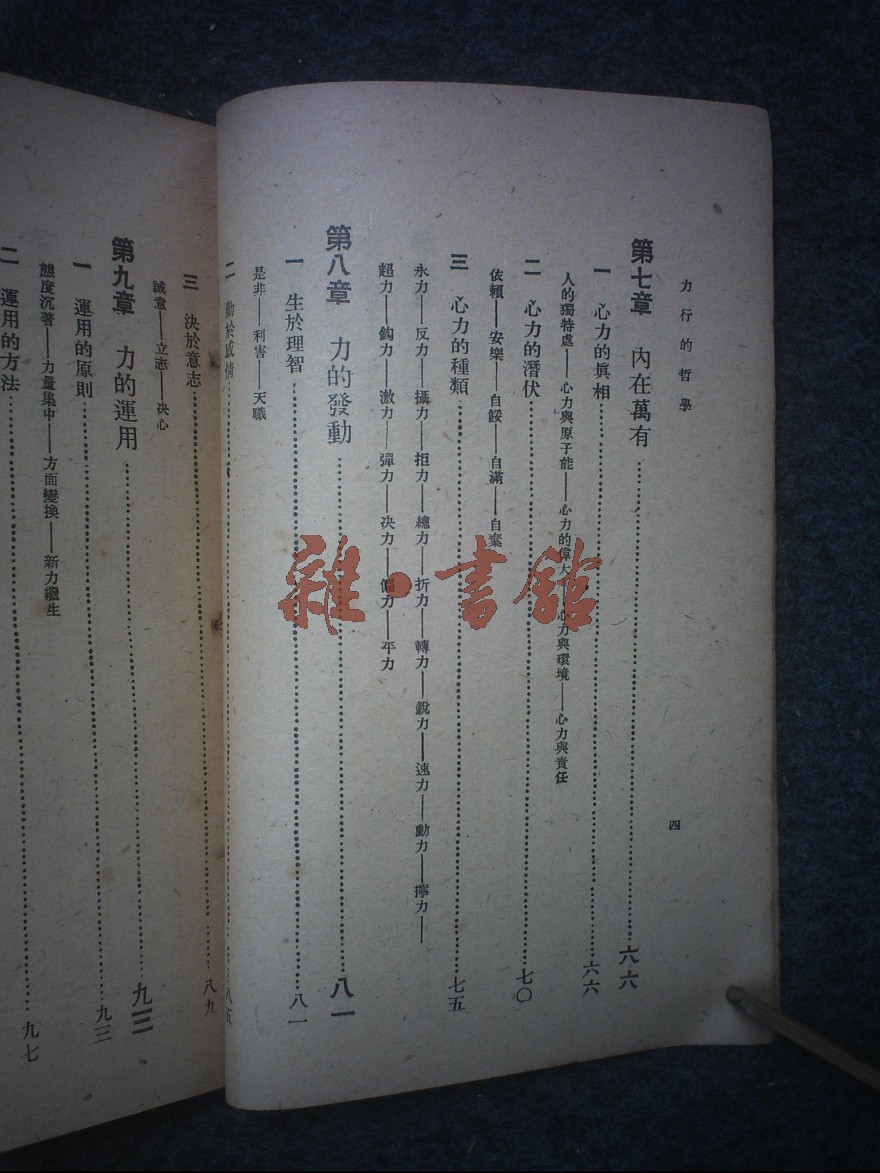 力行的哲學
四
第七章 內在萬有……六六
一 心力的眞相……六六
人的獨特處——心力與原子能——心力的偉大——心力與環境——心力與責任
二 心力的潛伏……七〇
依賴——安樂——自餒——自滿——自棄
三 心力的種類……七五
永力——反力——攝力——拒力——總力——折力——轉力——銳力——速力——動力——擰力——
超力——鈎力——激力——彈力——決力——偏力——平力
第八章 力的發動……八一
一 生於理智……八一
是非——利害——天職
二 動於感情……八五
三 決於意志……八九
誠意——立志——決心
第九章 力的運用……九三
一 運用的原則……九三
態度沉著——力量集中——方面變換——新力繼生
二 運用的方法……九七
雜·書館